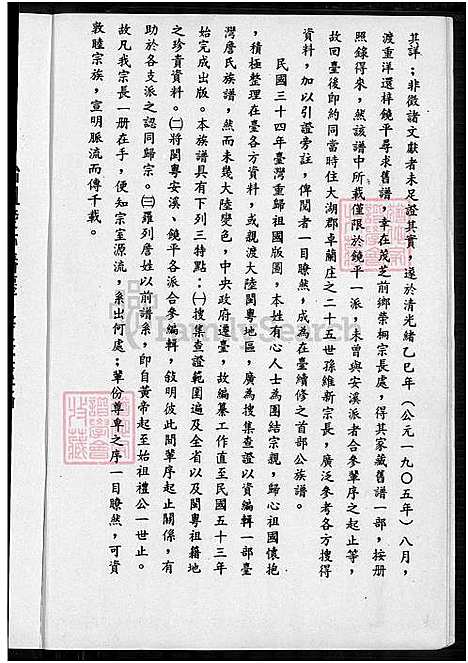 其詳；非徵諸文獻者未足證其實，遂於清光緒乙巳年（公元一九０五年）八月，
渡重洋還梓饒平尋求舊譜，幸在茂芝前鄉榮桐宗長處，得其家藏舊譜一部，按册
照錄得來，然該譜中所載僅限於饒平一派，未曾與安溪派者合參輩序之起止等，
故回臺後即約同當時住大湖郡卓蘭庄之二十五世孫維新宗長，廣泛參考各方搜得
資料，加以引證旁註，俾閱者一目瞭然，成為在臺續修之首部公族譜。
民國三十四年臺灣重歸祖國版圖，本姓有心人士為團結宗親，歸心祖國懷抱
，積極整理在臺各方資料，或親渡大陸閩粵地區，廣為搜集查證以資編輯一部臺
灣詹氏族譜，然而未幾大陸變色，中央政府遷臺，故編纂工作直至民國五十三年
始完成出版。本族譜具有下列三特點：㈠搜集查證範圍遍及全省以及閩粵祖籍地
之珍貴資料。㈡將閩粵安溪、饒平各派合參編輯，敍明彼此間輩序起止關係，有
助於各支派之認同歸宗。㈢羅列詹姓以前譜系，即自黃帝起至始祖禮公一世止。
故凡我宗長一册在手，便知宗室源流，系出何處；輩份尊卑之序一目瞭然，可資
敦睦宗族，宣明脈流而傳千載。
FamilySearch
譜學會
收藏